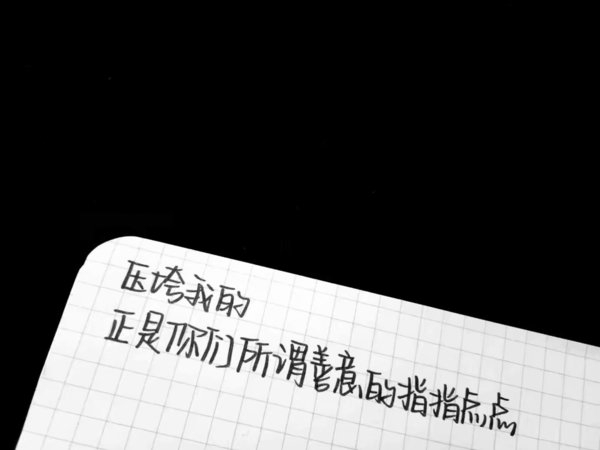 压垮我的
正是你们所谓善意的指指点点